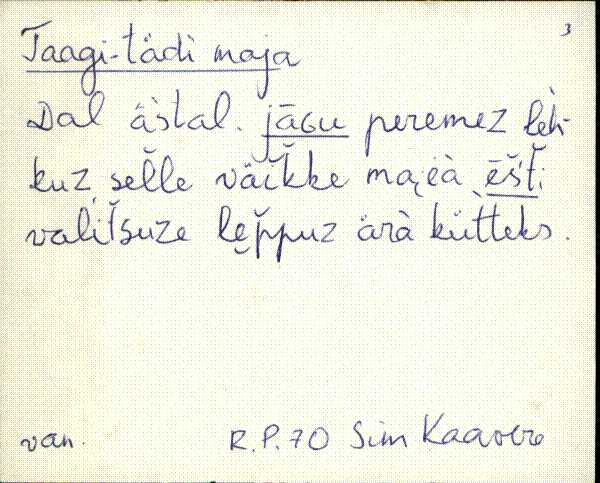 3
Taagi-tädi maja
Dal äštal. jāGu peremez leh-
kuz selle väikke
valitsuze leppuz ärà kütteks.
van. R.P. 70 Sim Kaavere